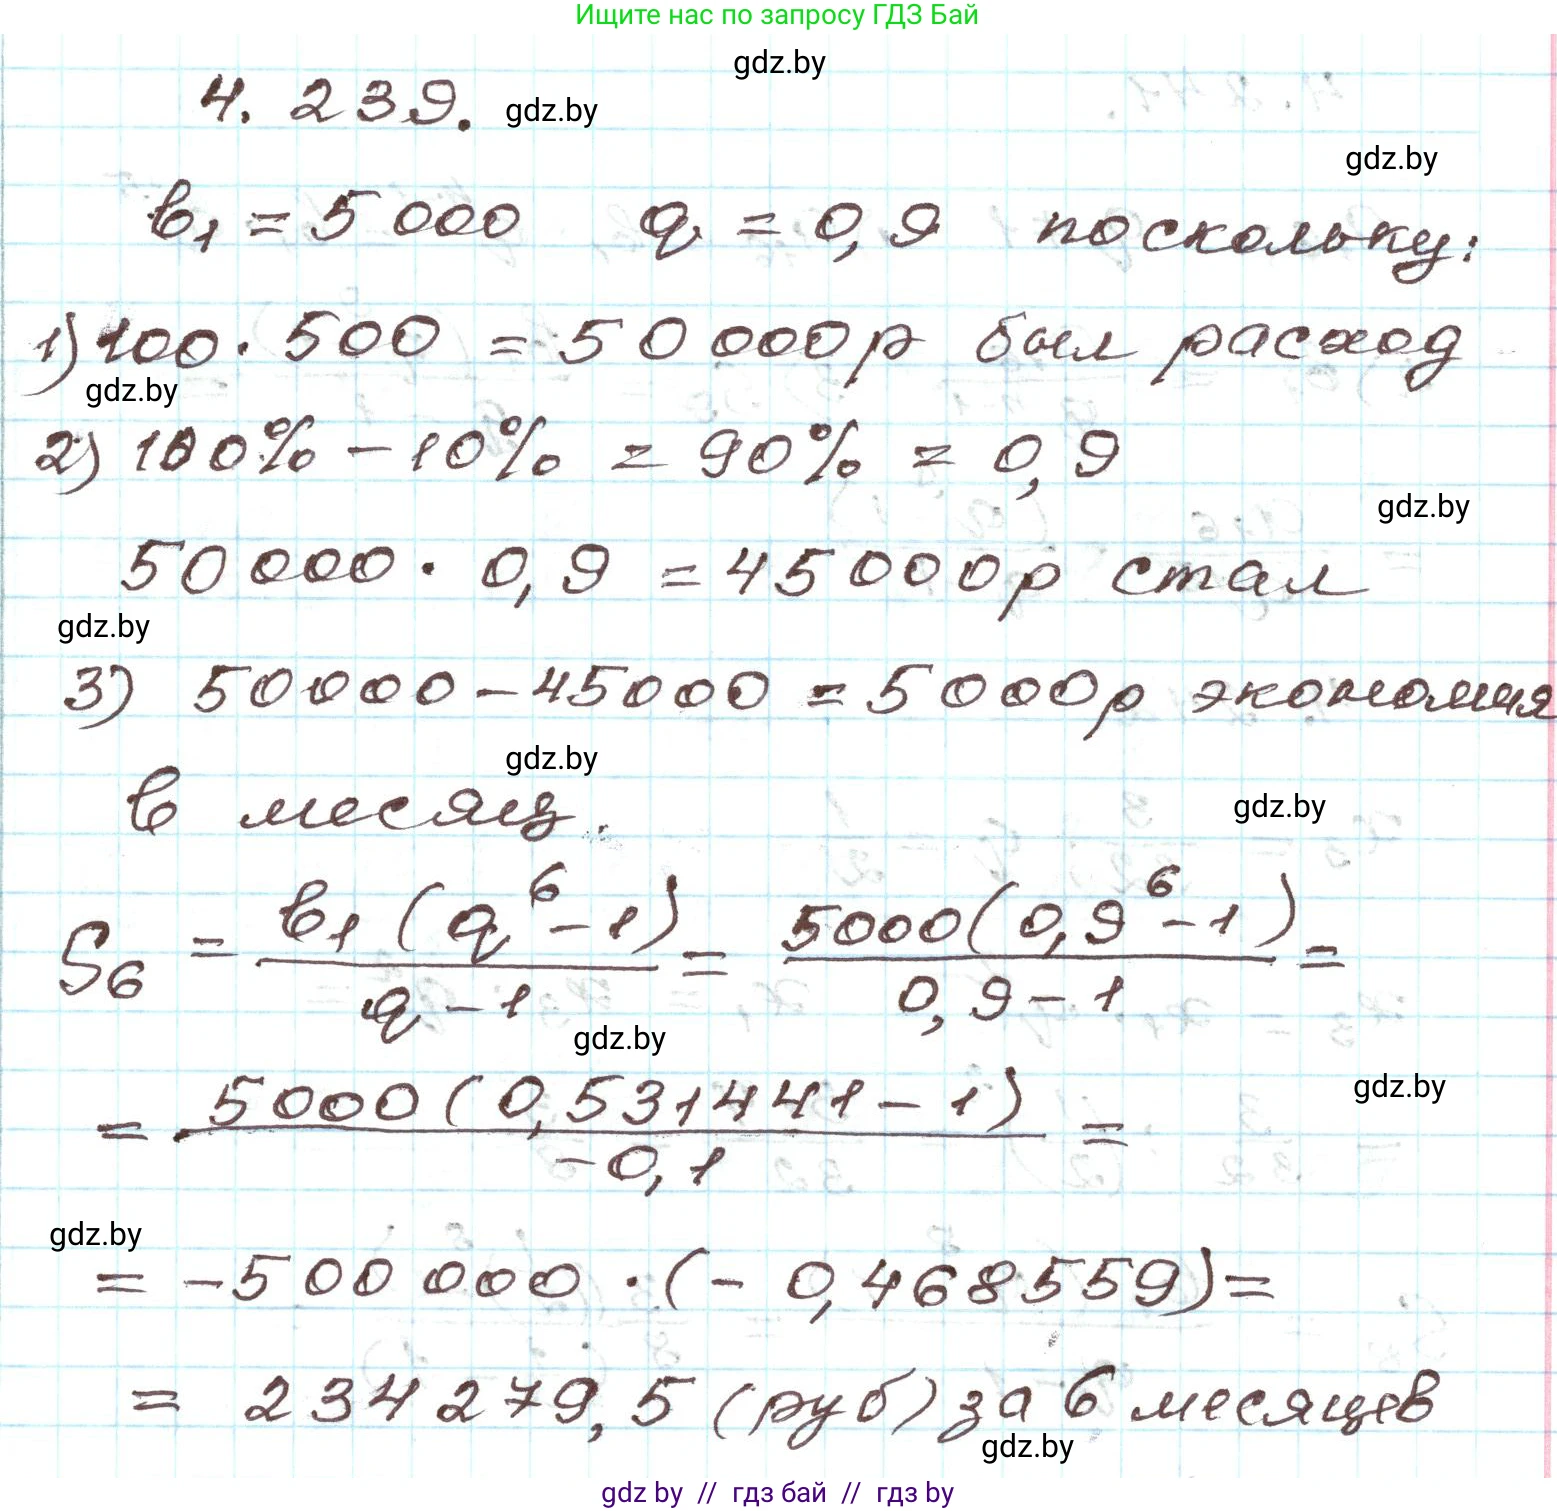 Ищите нас по запросу ГДЗ Бай
gdz.by
4. 239. gdz.by
gdz.by
b₁ = 5000 q = 0,9 поскольку:
1) 100 · 500 = 50 000р был расход
gdz.by
2) 100% - 10% = 90% = 0,9
gdz.by
50 000 · 0,9 = 45000р стал
gdz.by
3) 50000 - 45000 = 5000р экономия
gdz.by
в месяц.
gdz.by
S₆ = b₁ (q⁶ - 1) / q - 1 = 5000 (0,9⁶ - 1) / 0,9 - 1 =
gdz.by
= 5000 (0,531441 - 1) / -0,1 =
gdz.by
gdz.by
= -500 000 · (- 0,468559) =
= 234 279,5 (руб) за 6 месяцев
gdz.by
gdz by // гдз бай // gdz by